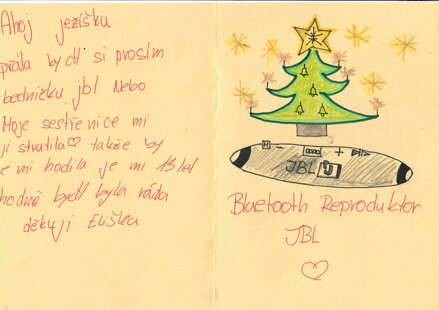 Ahoj ježíšku
přála bydl si prosím
bedničku jbl Nebo
Moje sestřenice mi
ji stratila takže by
e mi hodila je mi 13 let
hodně bydl byla ráda
děkuji Eliška
JBL
Bluetooth Reproduktor
JBL